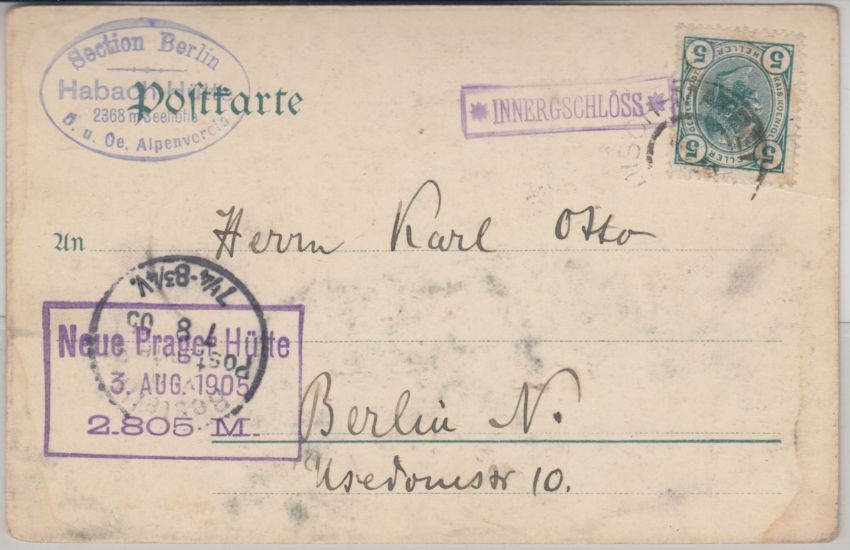 Section Berlin
Habach-Hütte
2368 m Seehöhe
D. u. Oe. Alpenverein
Postkarte
INNERGSCHLÖSS
5 HELLER 5
KAIS. KOENIGL.
OESTERR. POST
5 HELLER 5
An Herrn Karl Otto
7¼-8¾V.
7 8 05
Post
Neue Prager-Hütte
3. AUG. 1905
2.805 M.
Berlin N.
Usedomstr 10.